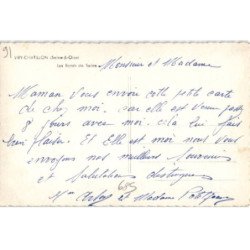 91
VIRY-CHATILLON (Seine-&-Oise)
Les Bords de Seine
Monsieur et Madame
Maman vous envoie cette petite carte
de chez moi. car elle est venue passer
8 jours avec moi. a la
faire plaisir. Et Elle et moi nous vous
envoyons nos meilleurs souvenirs
et salutations distinguées
Mme et Madame